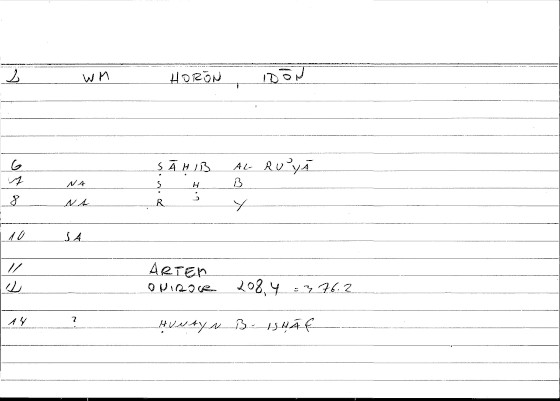 1 WM HORŌN, IDŌN
6 ṢĀḤIB AL-RUʾYĀ
7 NA Ṣ Ḥ B
8 NA R ʾ Y
10 SA
11 ARTEM
12 ONIROCR 208,4 = 376.2
14 ? ḤUNAYN B. ISḤĀQ